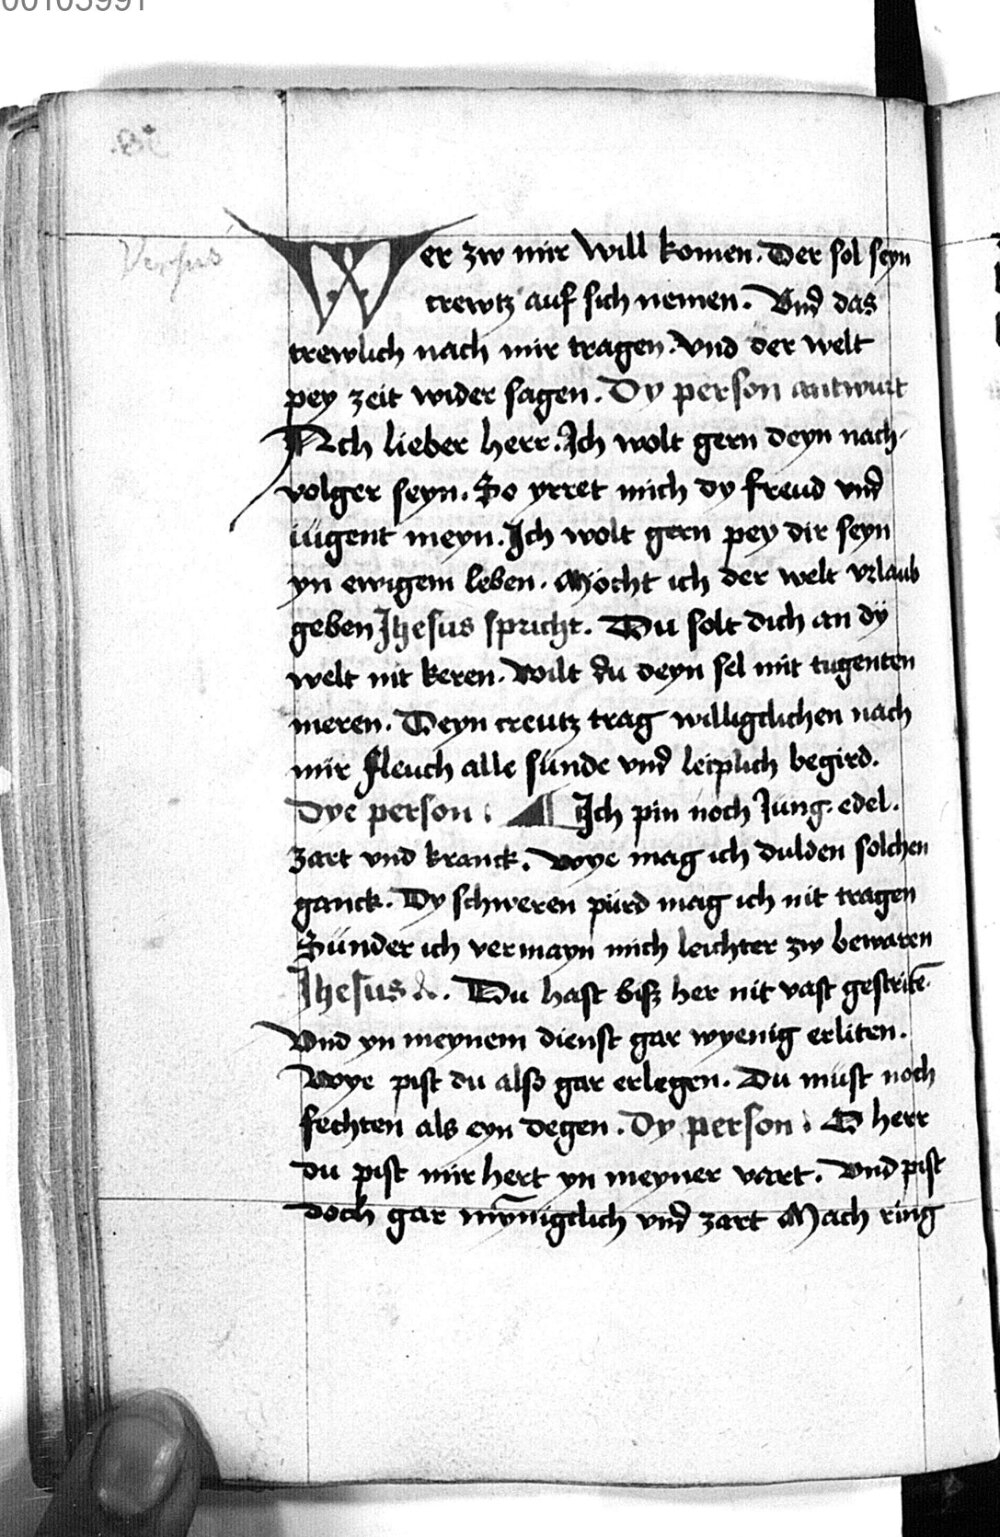 00105991
Versus
Wer zw mir will komen. Der sol seyn
crewtz auf sich nemen. Vnd das
trewlich nach mir tragen. Vnd der welt
pey zeit wider sagen. Dy person antwurt
Ach lieber herr. Ich wolt gern deyn nach-
volger seyn. So yrret mich dy freud vnd
iügent meyn. Ich wolt gern pey dir seyn
yn ewigem leben. Möcht ich der welt vrlaub
geben Jhesus spricht. Du solt dich an dÿ
welt nit keren. Wilt du deyn sel mit tugenten
meren. Deyn creutz trag willigclichen nach
mir fleuch alle sünde vnd leiplich begird.
Dye person : Ich pin noch Jüng. edel.
zart vnd kranck. Wye mag ich dulden solchen
ganck. Dy schweren pürd mag ich nit tragen
Sünder ich vermayn mich leichter zw bewaren
Jhesus &. Du hast bisz her nit vast gestritē.
Vnd yn meynem dienst gar wyenig erliten.
Wye pist du also gar erlegen. Du müst noch
fechten als eyn degen. Dy person : O herr
du pist mir hert yn meyner vart. Vnd pist
doch gar mȳnigclich vnd zart Mach ring